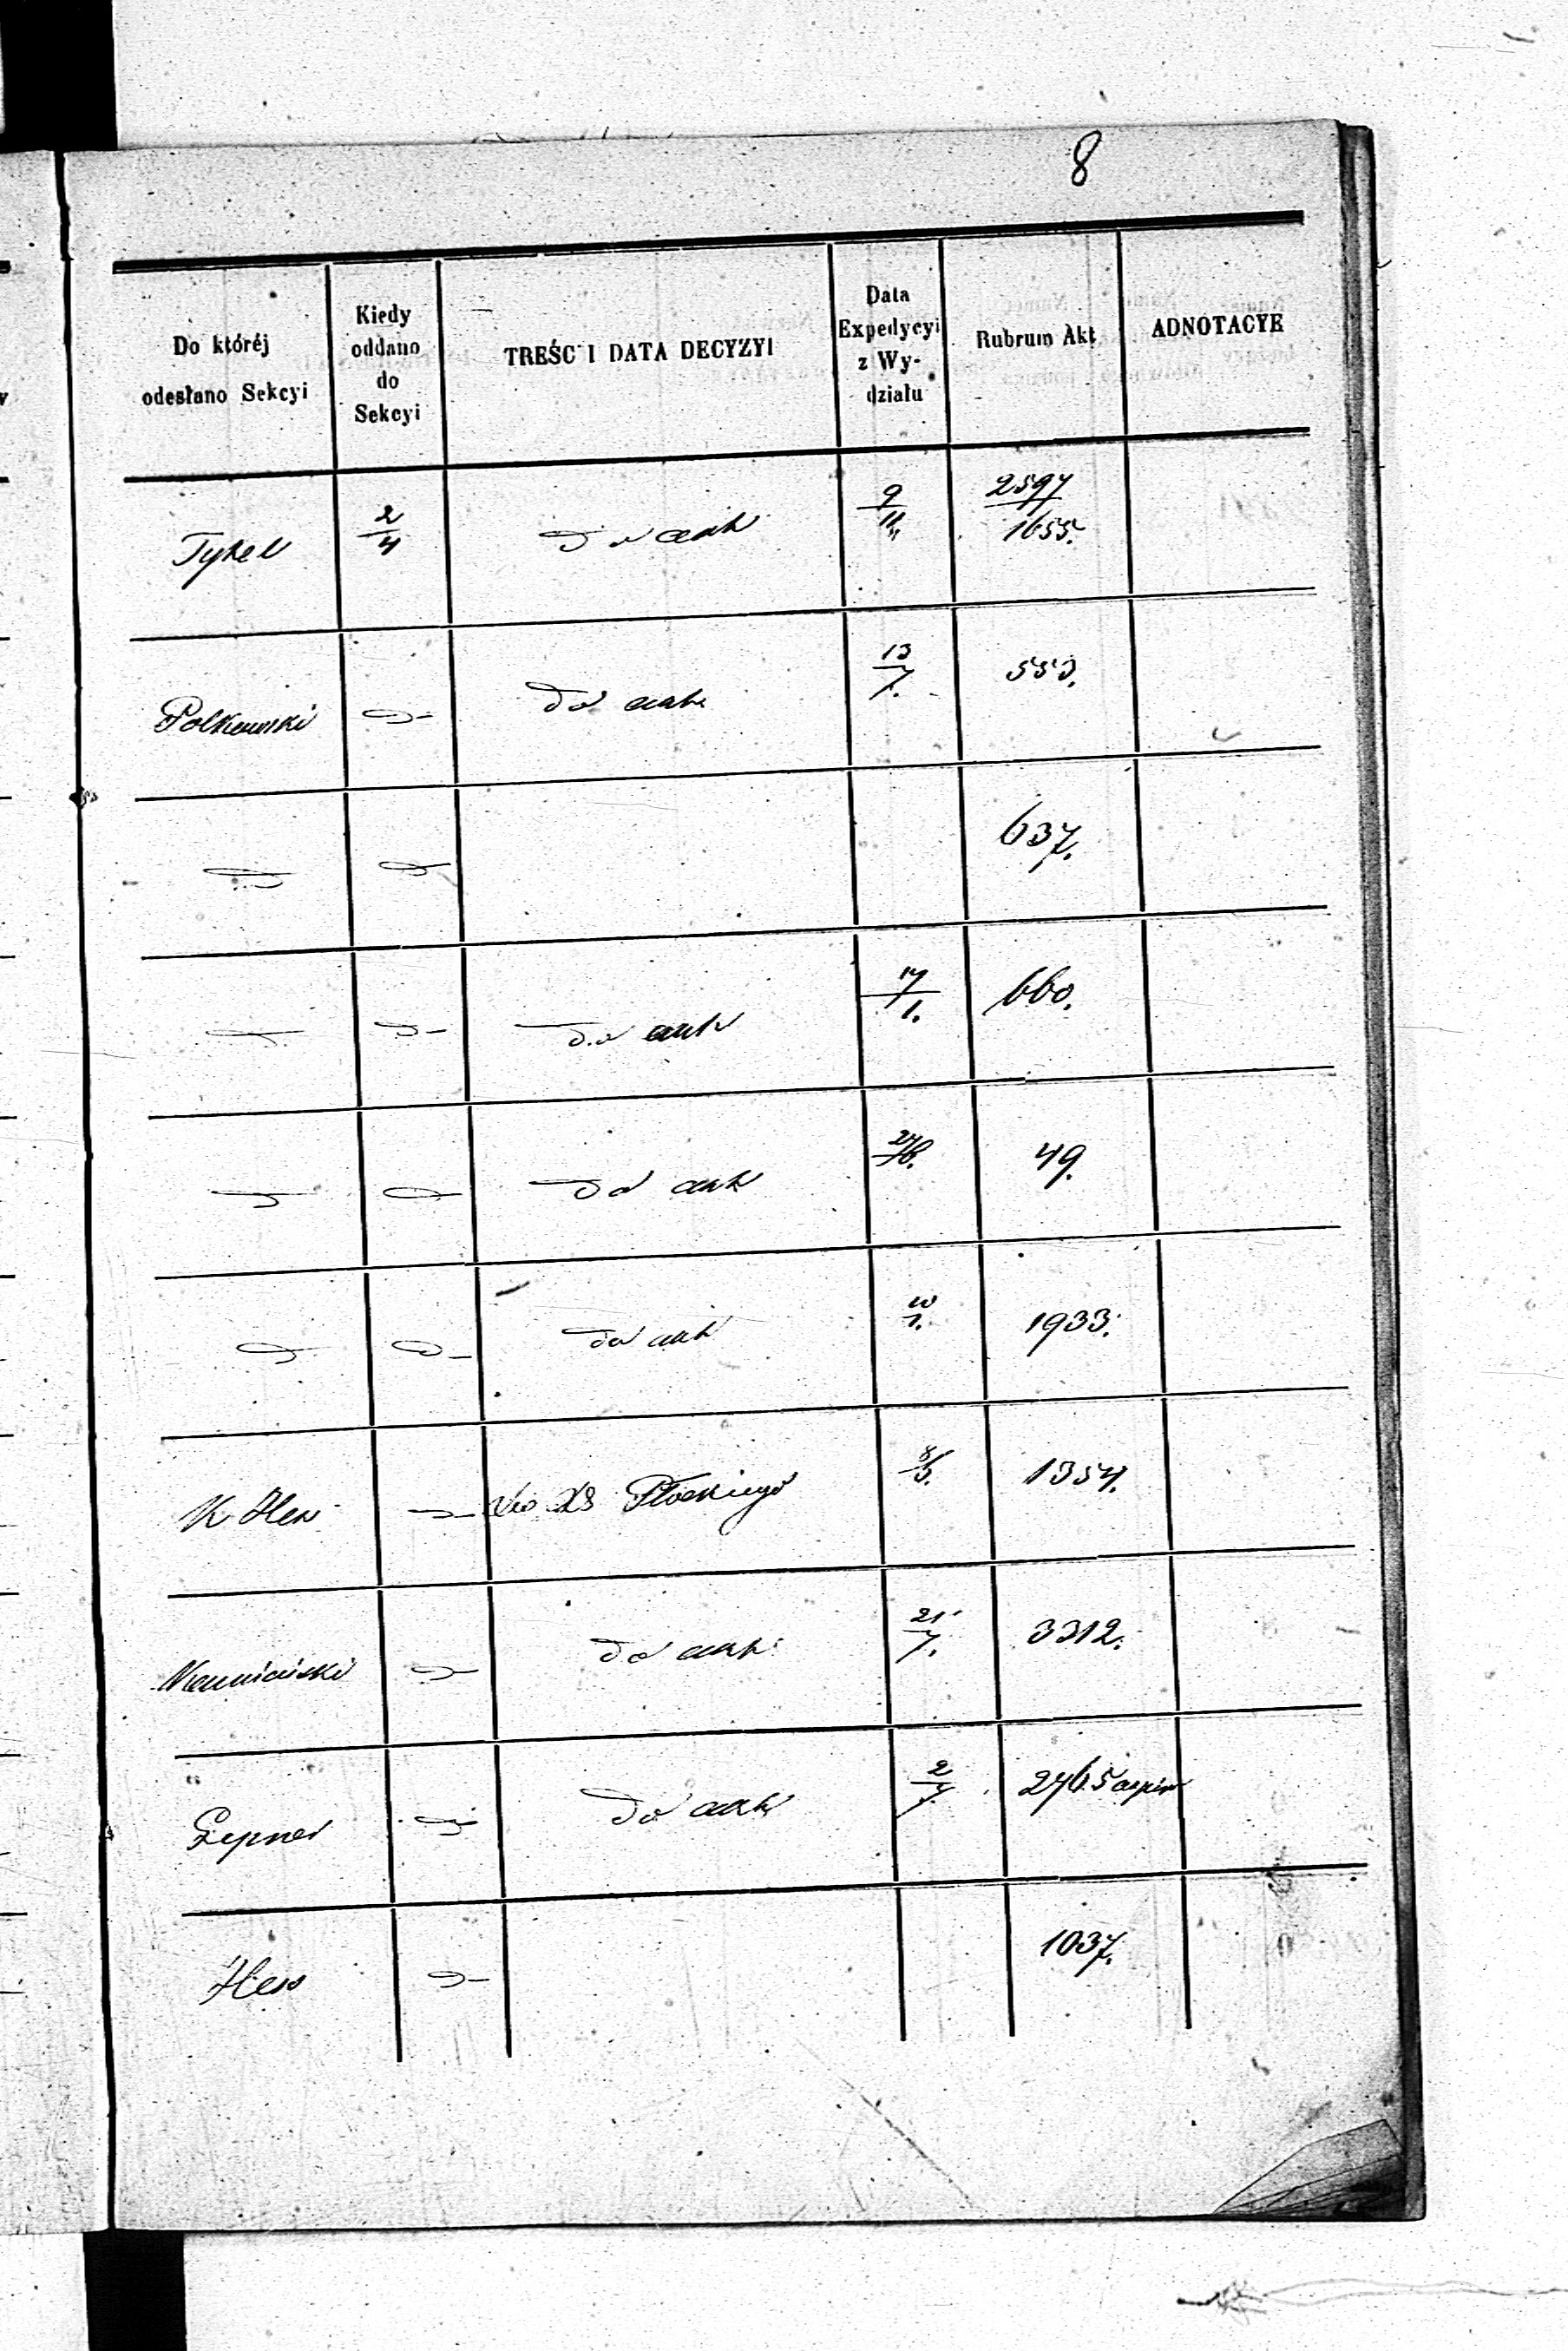 8
Do któréj odesłano Sekcyi
Kiedy oddano do Sekcyi
TREŚĆ I DATA DECYZYI
Data Expedycyi z Wydziału
Rubrum Akt
ADNOTACYE
Tykel 2/4 Do akt 9/11 2597/1655.
Polkowski Do akt 13/7. 553.
637.
Do akt 17/1. 660.
Do akt 27/6. 49.
Do akt 10/1. 1933.
K Hess Do Płockiego 8/5. 1354.
Do akt 21/7. 3312.
Gepner Do akt 2/7. 2765
Hess 1037.